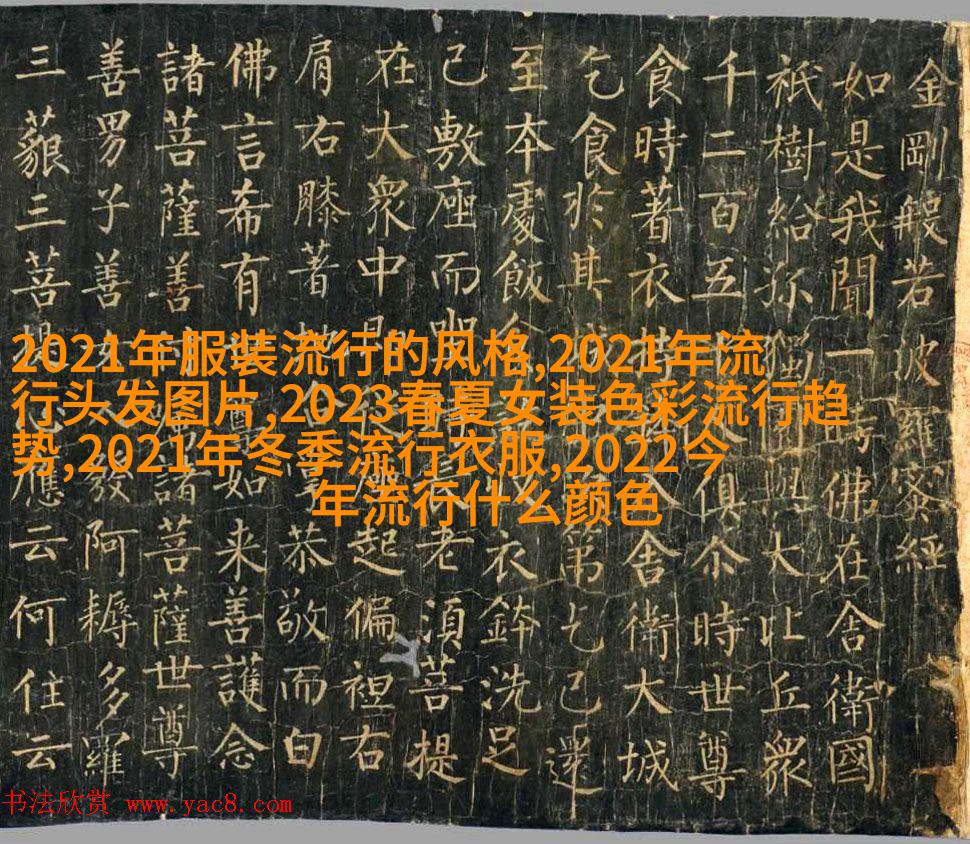 金剛般若波羅蜜經
如是我聞一時佛在舍衛國
祇樹給孤獨園與大比丘眾
千二百五俱尒時世尊
食時著衣持舍衛大城
乞食於其城第乞已還
至本處飯食衣鉢洗足
已敷座而坐老須菩提
在大眾中起偏袒右
肩右膝著恭敬而白
佛言希有如来善護念
諸菩薩善諸菩薩世尊
善男子善發阿耨多羅
三藐三菩提應云何住云
2021年服装流行的风格,2021年流
行头发图片,2023春夏女装色彩流行趋
势,2021年冬季流行衣服,2022今
年流行什么颜色
书法欣赏 www.yac8.com